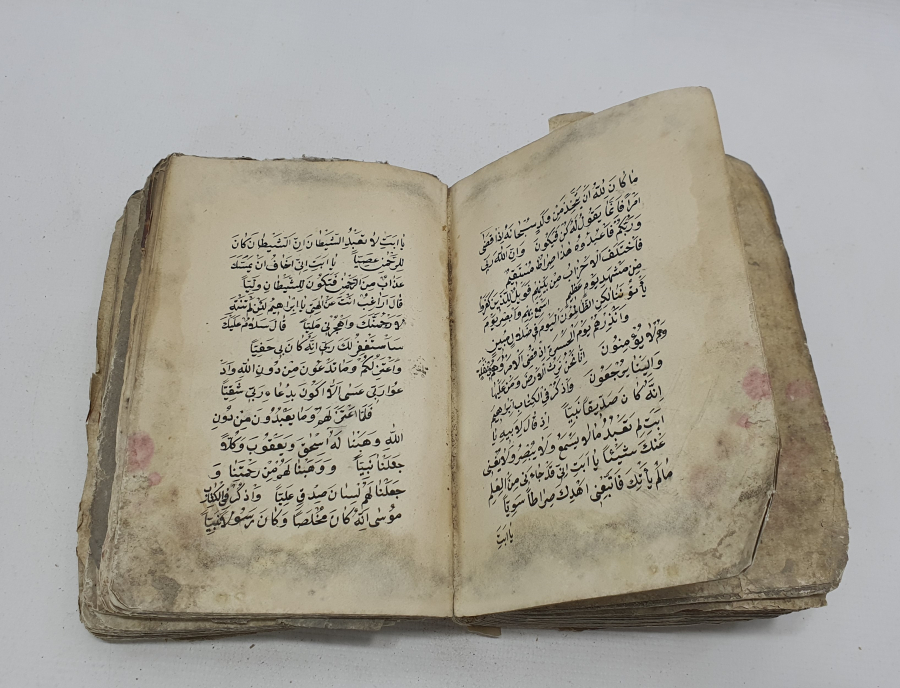 ما كان لله ان يتخذ من ولد سبحانه إذا قضى
امراً فانما يقول له كن فيكون وان الله ربي
وربكم فاعبدوه هذا صراط مستقيم
فاختلف الاحزاب من بينهم فويل للذين كفروا
من مشهد يوم عظيم اسمع بهم وابصر يوم
يأتوننا لكن الظالمون اليوم في ضلال مبين
وانذرهم يوم الحسرة اذ قضى الامر وهم في غفلة
وهم لا يؤمنون انا نحن نرث الارض ومن عليها
والينا يرجعون واذكر في الكتاب ابراهيم
انه كان صديقاً نبياً اذ قال لابيه يا
ابت لم تعبد ما لا يسمع ولا يبصر ولا يغني
عنك شيئاً يا ابت اني قد جاءني من العلم
مالم يأتك فاتبعني اهدك صراطاً سوياً
يا ابت
يا ابت لا تعبد الشيطان ان الشيطان كان
للرحمن عصياً يا ابت اني اخاف ان يمسك
عذاب من الرحمن فتكون للشيطان ولياً
قال اراغب انت عن الهتي يا ابراهيم لئن لم تنته
لارجمنك واهجرني ملياً قال سلام عليك
سأستغفر لك ربي انه كان بي حفياً
واعتزلكم وما تدعون من دون الله واد
عوا ربي عسى الا اكون بدعاء ربي شقياً
فلما اعتزلهم وما يعبدون من دون
الله وهبنا له اسحق ويعقوب وكلا
جعلنا نبياً ووهبنا لهم من رحمتنا و
جعلنا لهم لسان صدق علياً واذكر في الكتاب
موسى انه كان مخلصاً وكان رسولا نبياً